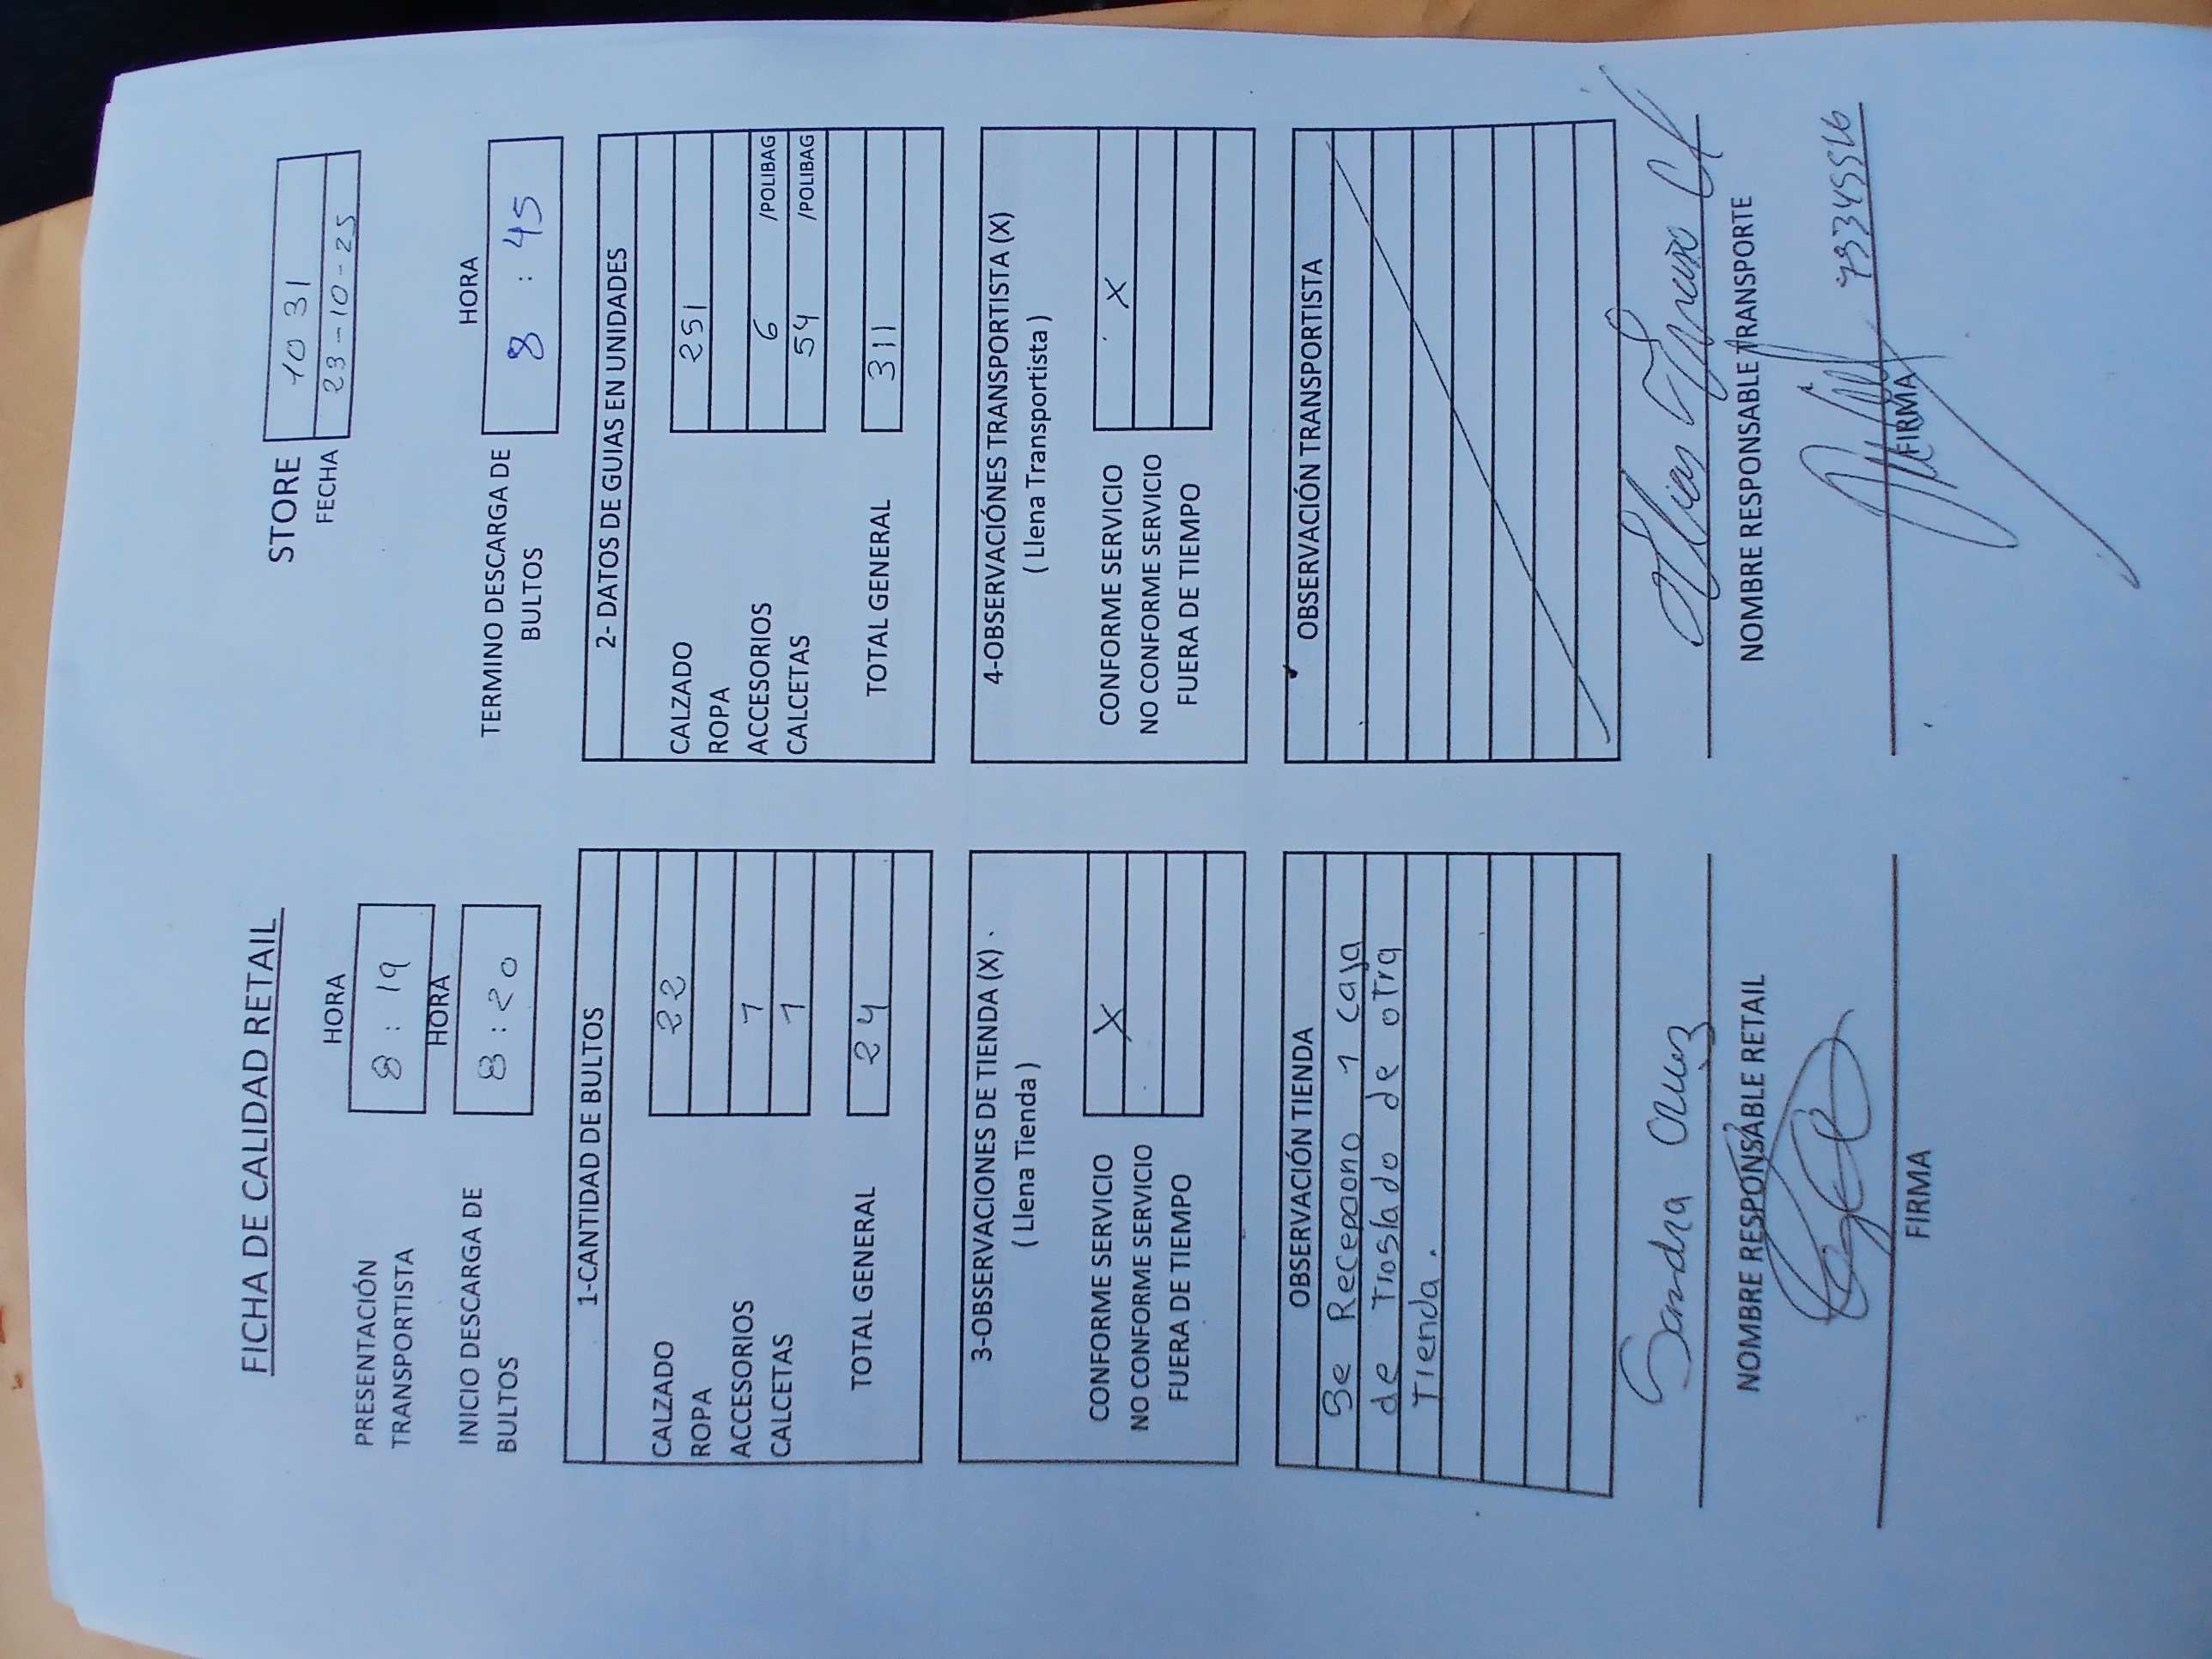 FICHA DE CALIDAD RETAIL
STORE 1031
FECHA 23-10-25
HORA
PRESENTACIÓN
TRANSPORTISTA
8:19
HORA
INICIO DESCARGA DE
BULTOS
8:20
HORA
TERMINO DESCARGA DE
BULTOS
8:45
1-CANTIDAD DE BULTOS
CALZADO 22
ROPA
ACCESORIOS 1
CALCETAS 1
TOTAL GENERAL 24
2- DATOS DE GUIAS EN UNIDADES
CALZADO 251
ROPA
ACCESORIOS 6 /POLIBAG
CALCETAS 54 /POLIBAG
TOTAL GENERAL 311
3-OBSERVACIONES DE TIENDA (X)
( Llena Tienda )
CONFORME SERVICIO X
NO CONFORME SERVICIO
FUERA DE TIEMPO
4-OBSERVACIÓNES TRANSPORTISTA (X)
( Llena Transportista )
CONFORME SERVICIO X
NO CONFORME SERVICIO
FUERA DE TIEMPO
OBSERVACIÓN TIENDA
Se Recepciono 1 caja
de Traslado de otra
Tienda.
OBSERVACIÓN TRANSPORTISTA
Sandra Cruz
NOMBRE RESPONSABLE RETAIL
FIRMA
NOMBRE RESPONSABLE TRANSPORTE
FIRMA